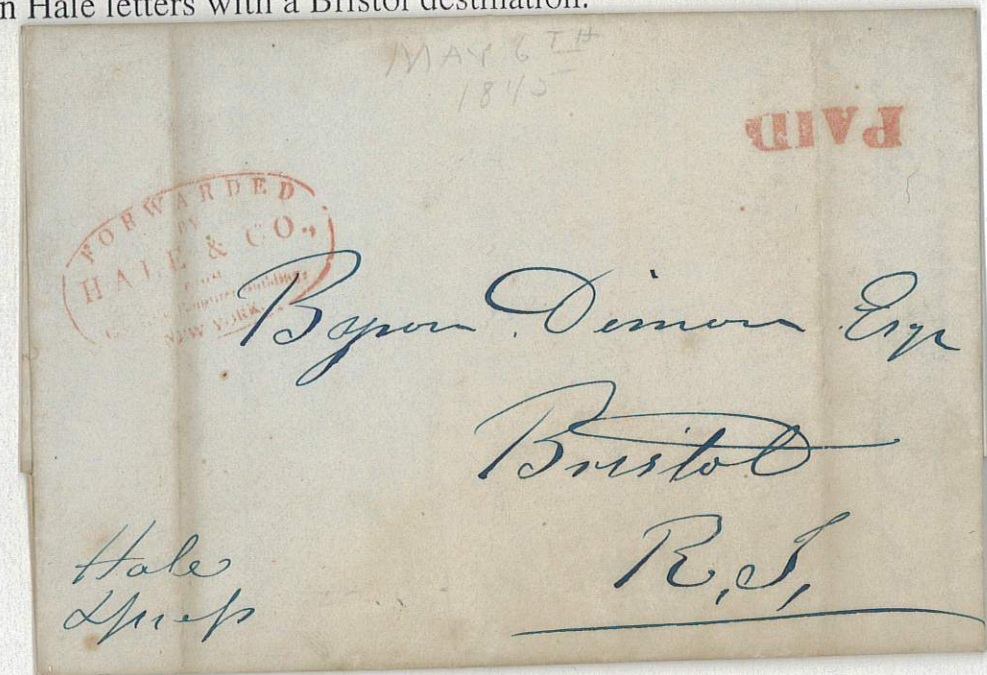 Hale letters with a Bristol destination.
MAY 6TH
1845
PAID
FORWARDED
BY
HALE & CO.,
NEW YORK.
Byron Dimon Esqr
Bristol
R,I,
Hale